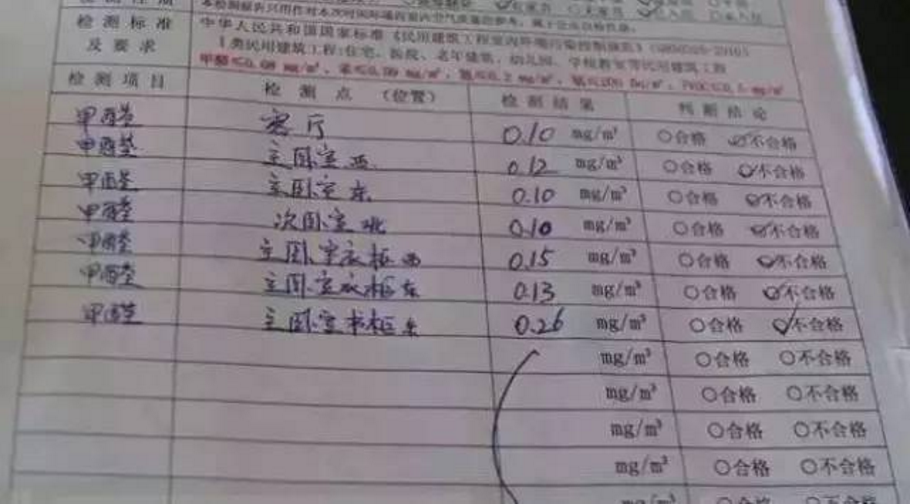 检测标准 中华人民共和国国家标准《民用建筑工程室内环境污染控制规范》
及要求 I类民用建筑工程:住宅、医院、老年建筑、幼儿园、学校教室等民用建筑工程
检测项目 检测点（位置） 检测结果 判断结论
甲醛 客厅 0.10 mg/m³ 〇合格 ✓不合格
甲醛 主卧室西 0.12 mg/m³ 〇合格 ✓不合格
甲醛 主卧室东 0.10 mg/m³ 〇合格 ✓不合格
甲醛 次卧室北 0.10 mg/m³ 〇合格 ✓不合格
甲醛 主卧室衣柜西 0.15 mg/m³ 〇合格 ✓不合格
甲醛 主卧室衣柜东 0.13 mg/m³ 〇合格 ✓不合格
甲醛 主卧室书柜东 0.26 mg/m³ 〇合格 ✓不合格
mg/m³ 〇合格 〇不合格
mg/m³ 〇合格 〇不合格
mg/m³ 〇合格 〇不合格
mg/m³ 〇合格 〇不合格